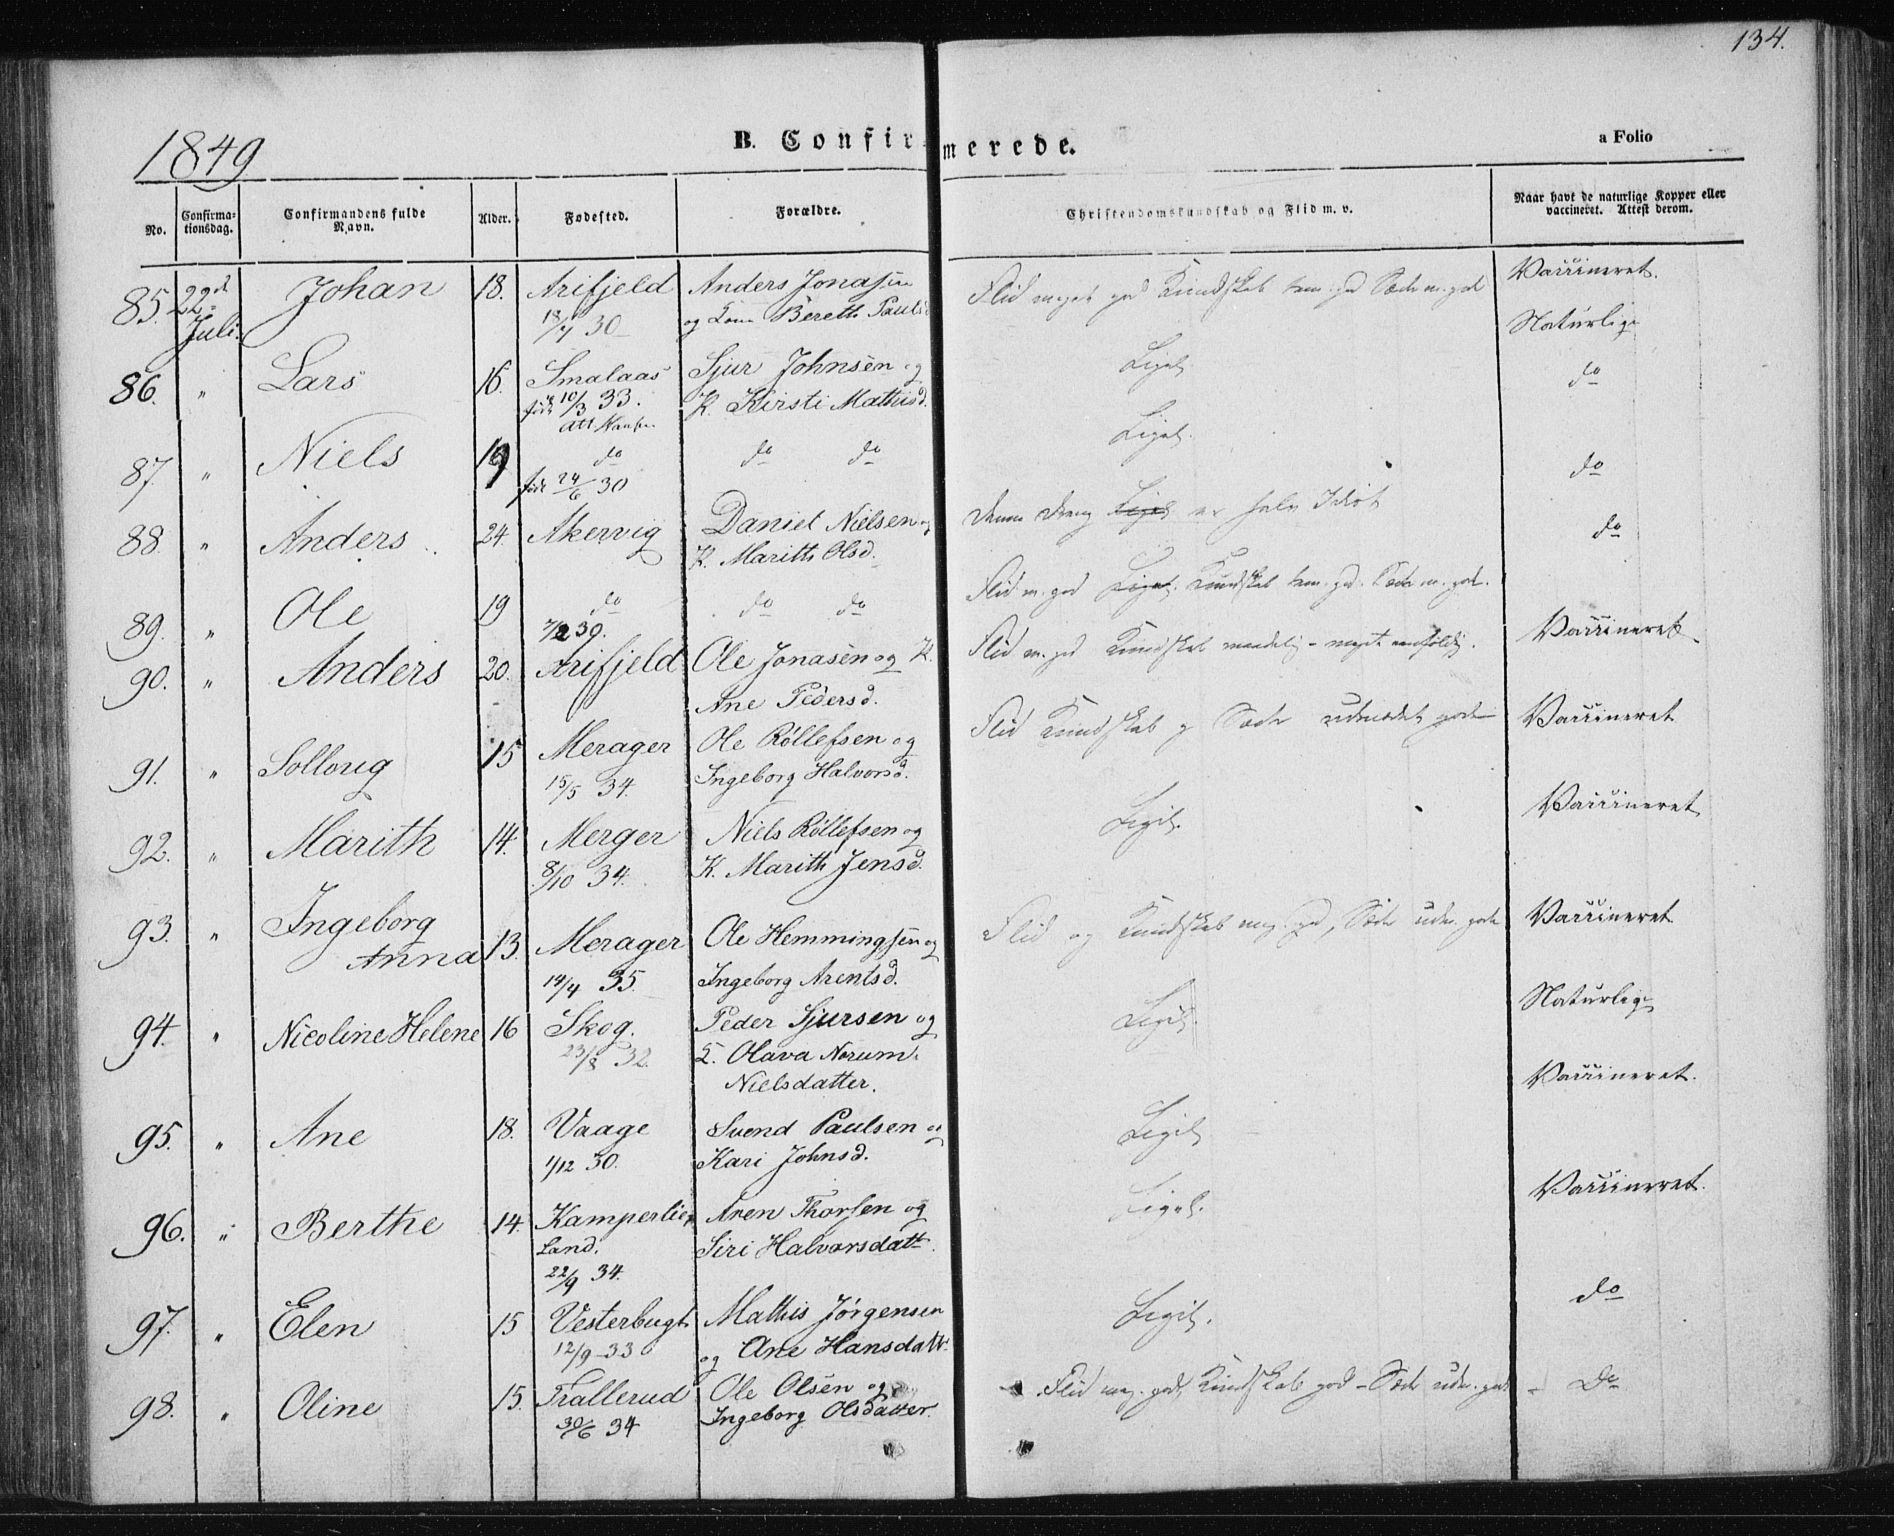 134.
1849
B. Confirmerede.
a Folio
No.
Confirmationsdag.
Confirmandens fulde Navn.
Alder.
Fødested.
Forældre.
Christendomskundskab og Flid m. v.
Naar havt de naturlige Kopper eller vaccineret. Attest derom.
85. 22d Juli. Johan 18. Arifjeld Anders Jonasen Flid meget god Kundskab tem. god Sæder m. gode Vaccineret.
18/4 30 og Berett Paulsd Naturlige
86. " Lars 16. Smalaas Sjur Johnsen og Ligel. do
født 10/3 33. K. Kirsti Mathisd.
att
87. " Niels 19 do do do Ligel. do
født 24/6 30
88. " Anders 24. Akervig Daniel Nielsen og Denne Dreng Ligel er halv Idiot do
K. Marith Olsd.
89. " Ole 19 do do do Flid m. god Ligel. Kundskab tem. god. Sæder m. gode.
7/2 30.
90. " Anders 20. Arifjeld Ole Jonasen og K. Flid m. god Kundskab maadelig - meget eenfoldig. Vaccineret
Ane Pedersd.
91. " Sollovig 15 Merager Ole Rollefsen og Flid Kundskab og Sæder udmærket gode Vaccineret
15/5 34. Ingeborg Halvorsd.
92. " Marith 14. Merger Niels Rollefsen og Ligel. Vaccineret
8/10 34. K. Marith Jensd.
93. " Ingeborg Anna 13. Merager Ole Hemmingsen og Flid og Kundskab meg. god, Sæder udm. gode Vaccineret
14/4 35. Ingeborg Arentsd.
94. " Nicoline Helene 16 Skog. Peder Sjursen og Ligel. Naturlige
23/8 32. Olava Norum.
Nielsdatter.
95. " Ane 18. Vaage Svend Paulsen og Ligel. Vaccineret.
1/12 30. Kari Johnsd.
96. " Berthe 14. Kamperlien Aren Thorsen og Ligel. Vaccineret.
Land. Siri Halvorsdatt.
22/9 34.
97. " Elen 15 Vesterbugt Mathis Jørgensen Ligel. do
12/9 33 og Ane Hansdatt.
98. " Oline 15. Trallerud Ole Olsen og Flid meg. god, Kundskab god - Sæder udm. gode Do
30/6 34 Ingeborg Olsdatter.